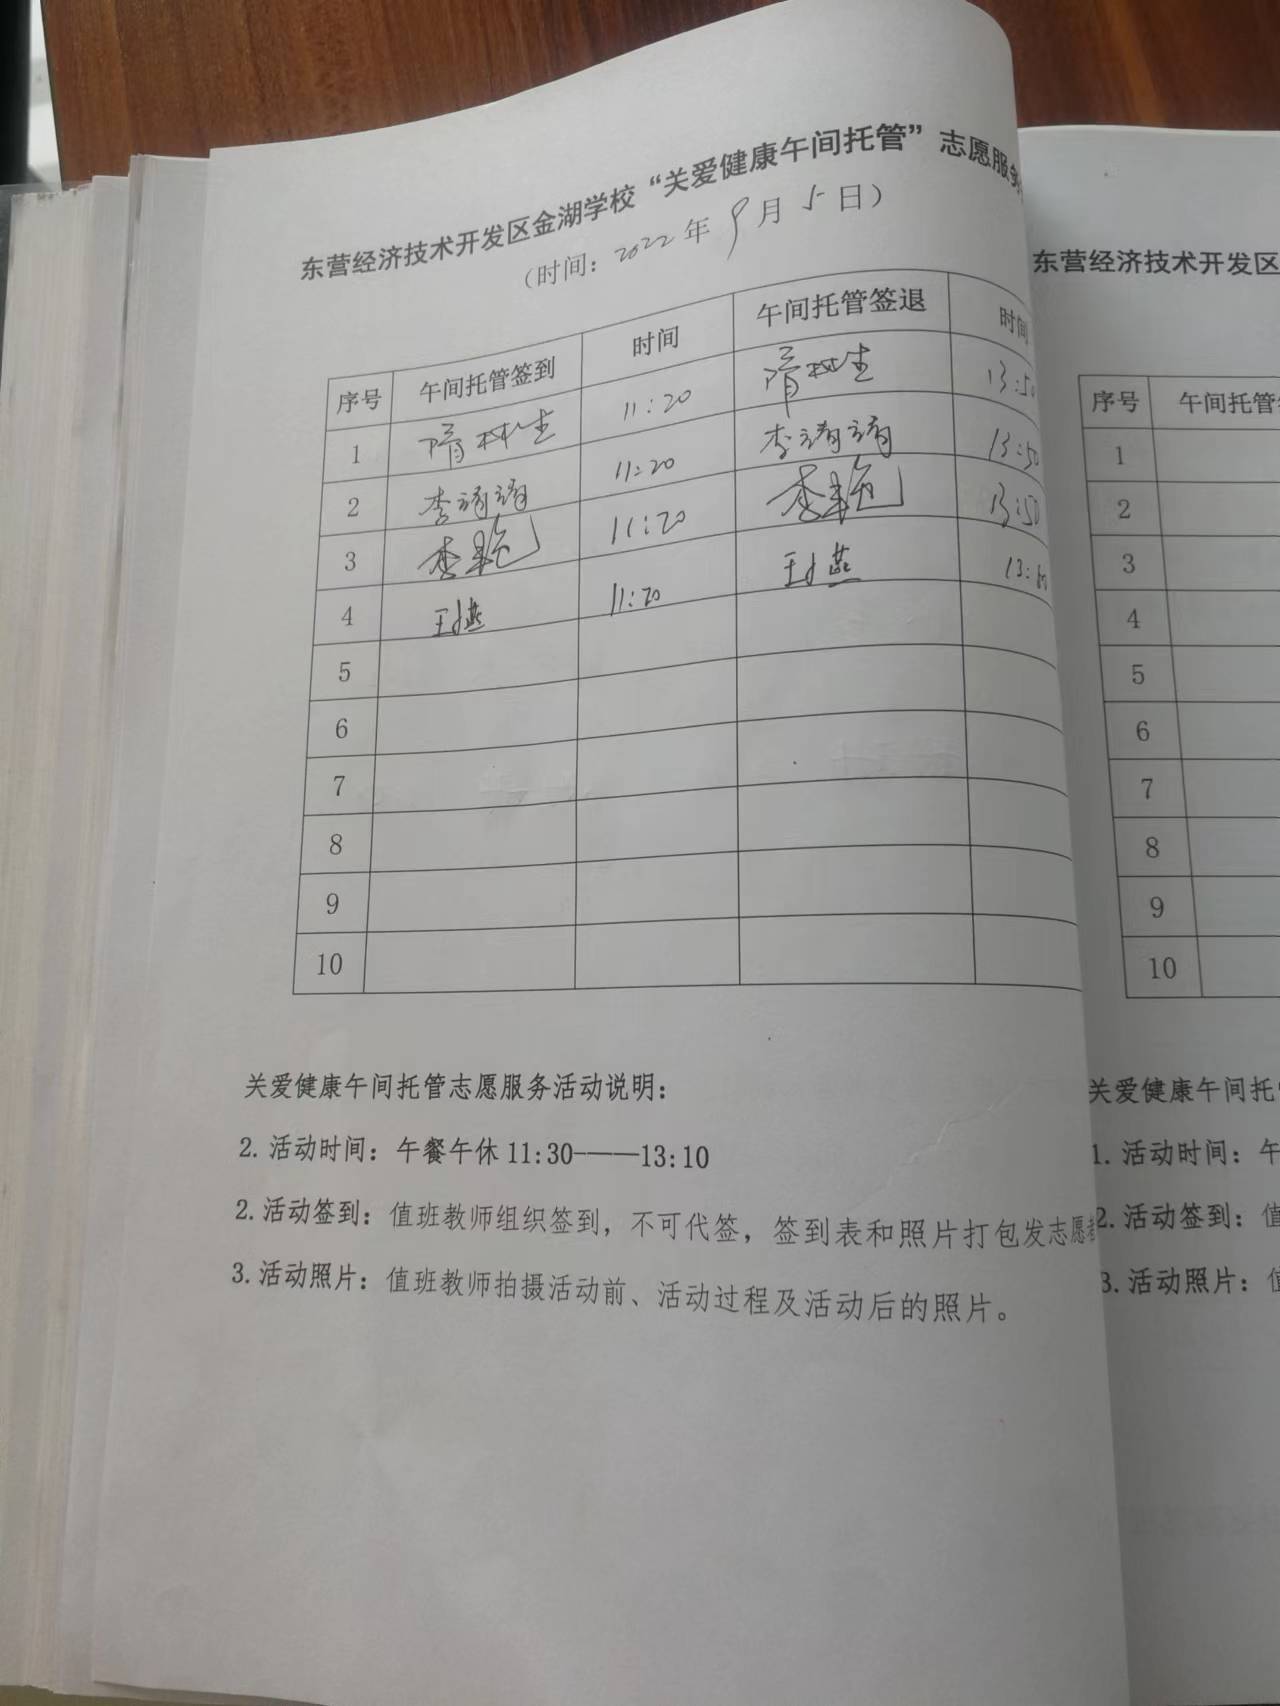 东营经济技术开发区金湖学校“关爱健康午间托管”志愿服务
(时间：2022年9月5日)
序号 午间托管签到 时间 午间托管签退 时间
1 隋树生 11:20 隋树生 13:50
2 李靖靖 11:20 李靖靖 13:50
3 李艳 11:20 李艳 13:50
4 11:20 13:
5
6
7
8
9
10
关爱健康午间托管志愿服务活动说明：
2. 活动时间：午餐午休 11:30-——13:10
2. 活动签到：值班教师组织签到，不可代签，签到表和照片打包发志愿者
3. 活动照片：值班教师拍摄活动前、活动过程及活动后的照片。
东营经济技术开发区
序号 午间托管
1
2
3
4
5
6
7
8
9
10
关爱健康午间托
1. 活动时间：午
2. 活动签到：值
3. 活动照片：值